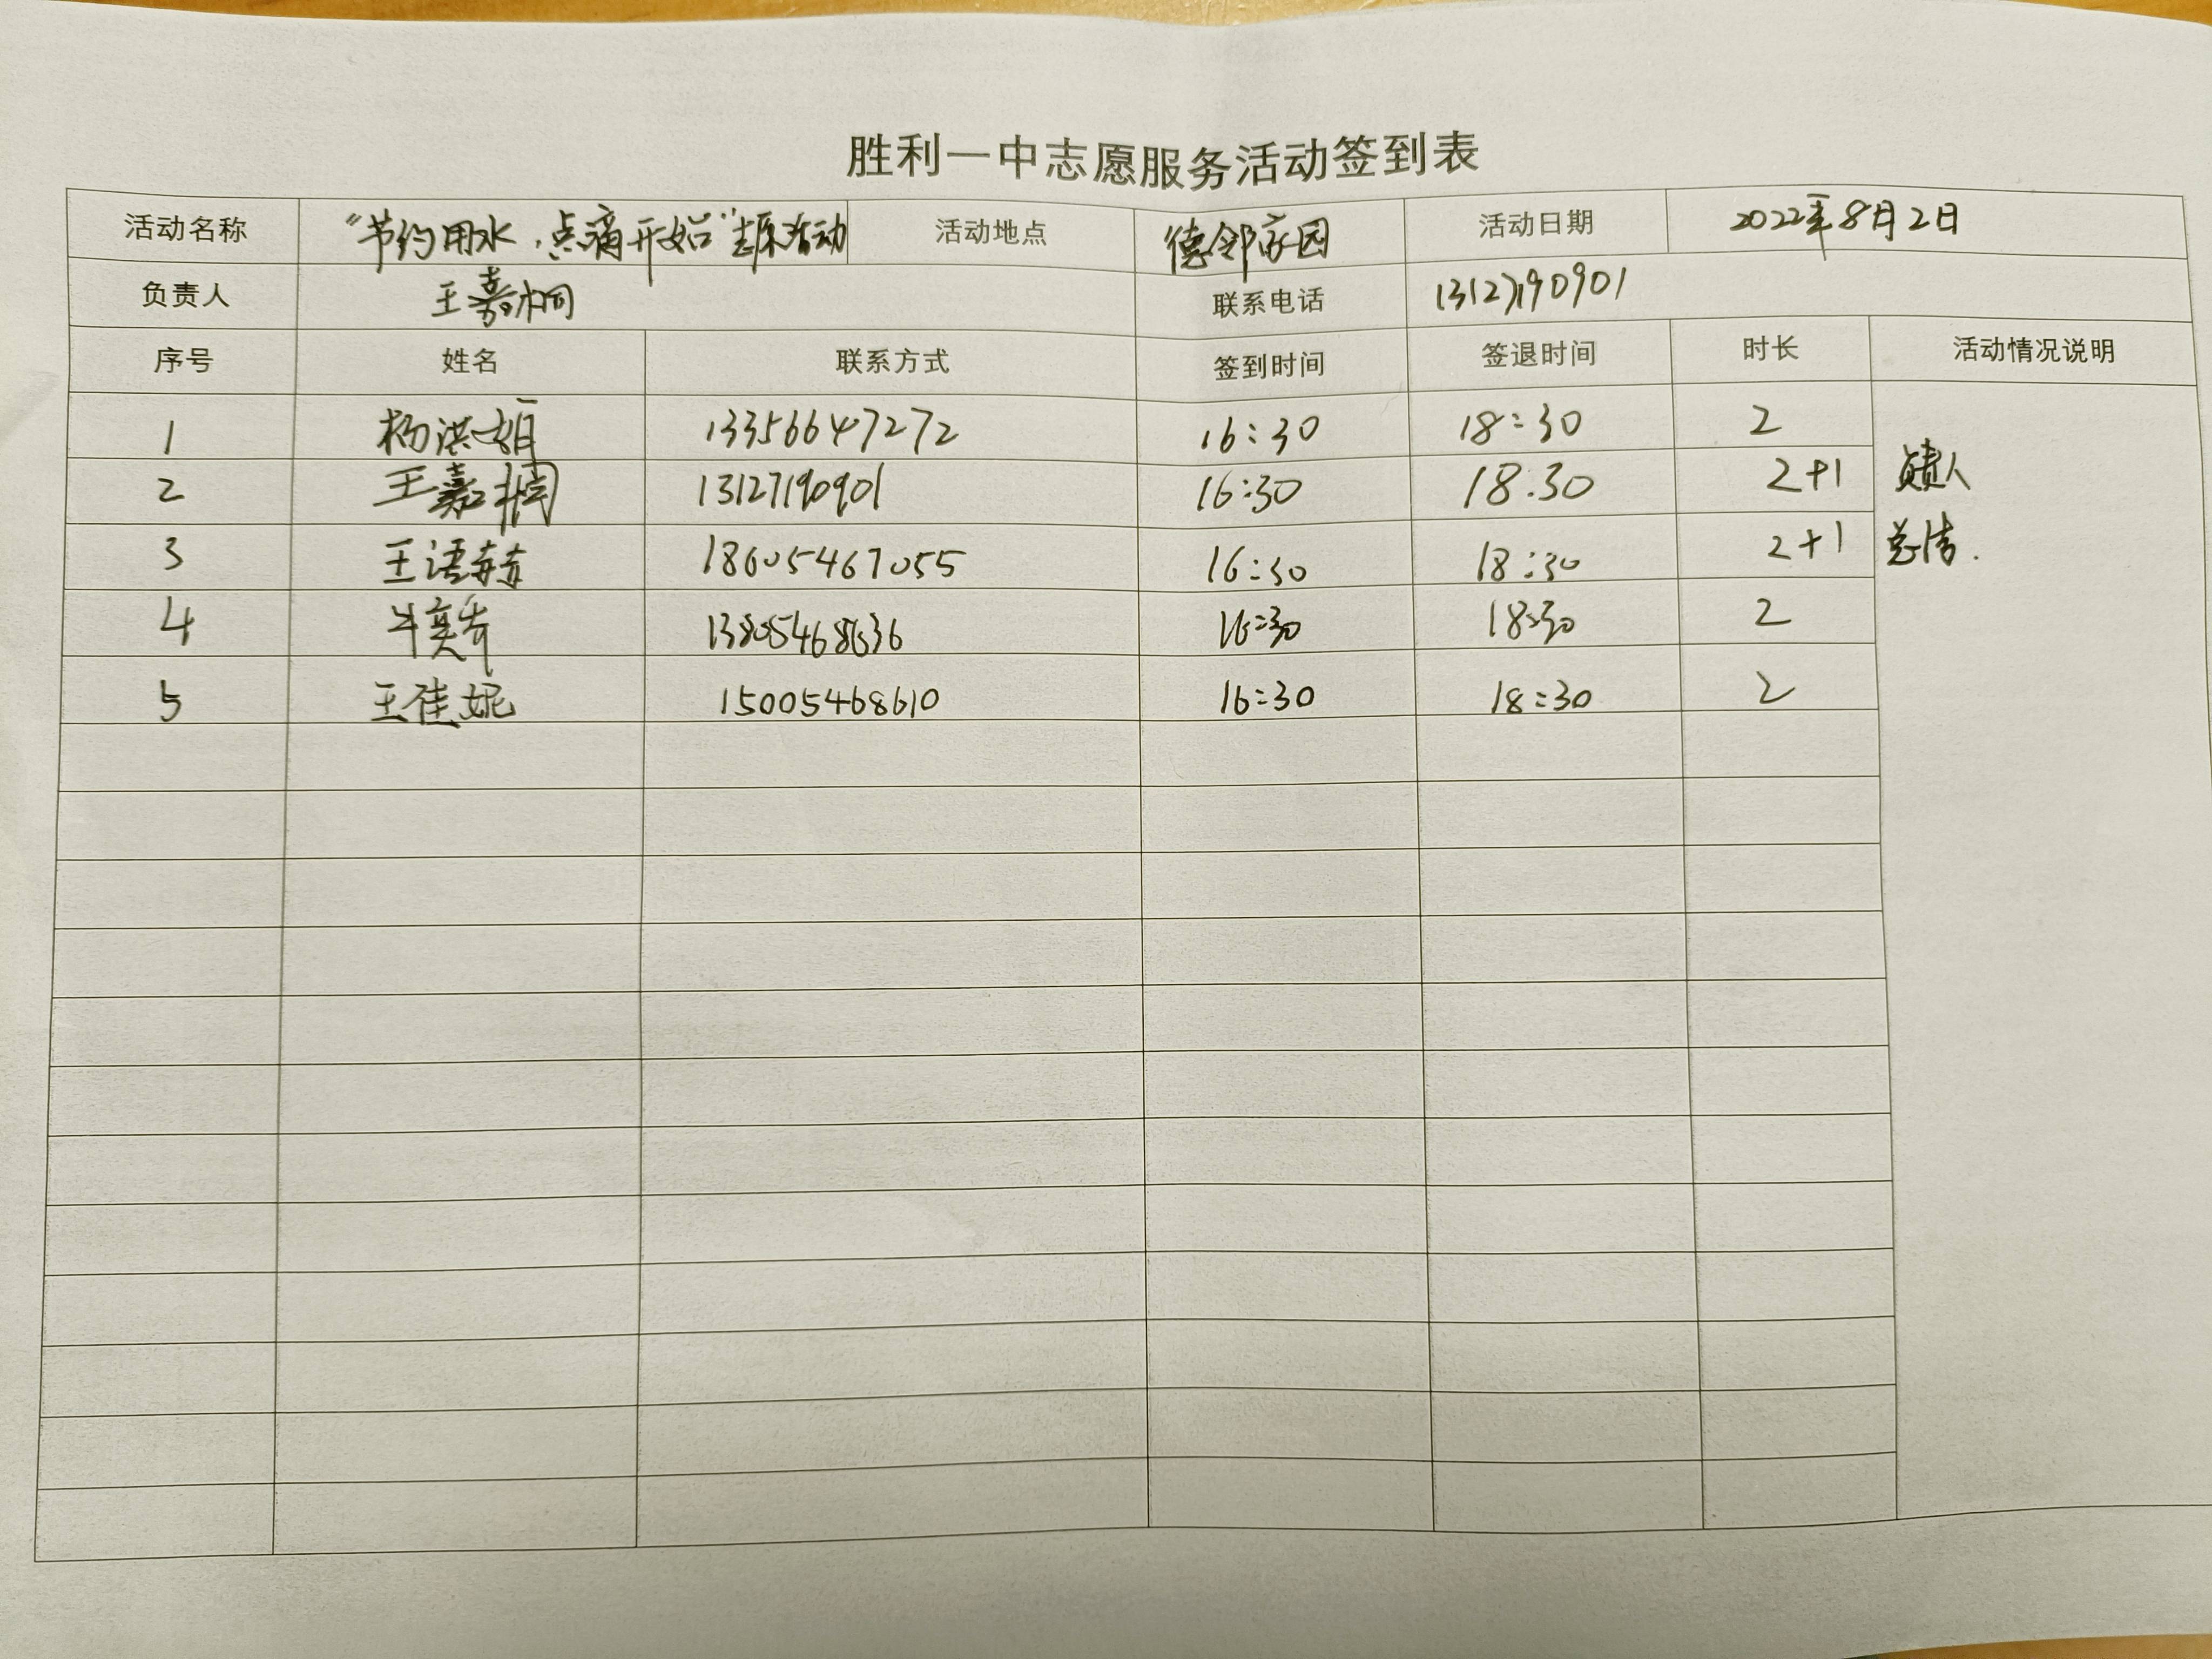 胜利一中志愿服务活动签到表
活动名称 “节约用水,点滴开始”志愿活动 活动地点 德邻家园 活动日期 2022年8月2日
负责人 王嘉桐 联系电话 13127190901
序号 姓名 联系方式 签到时间 签退时间 时长 活动情况说明
1 杨洪 13356647272 16:30 18:30 2
2 王嘉桐 13127190901 16:30 18:30 2+1 负责人
3 王语 18605467055 16:30 18:30 2+1 总结.
4 牛奕 13805468636 16:30 18:30 2
5 王佳妮 15005468610 16:30 18:30 2